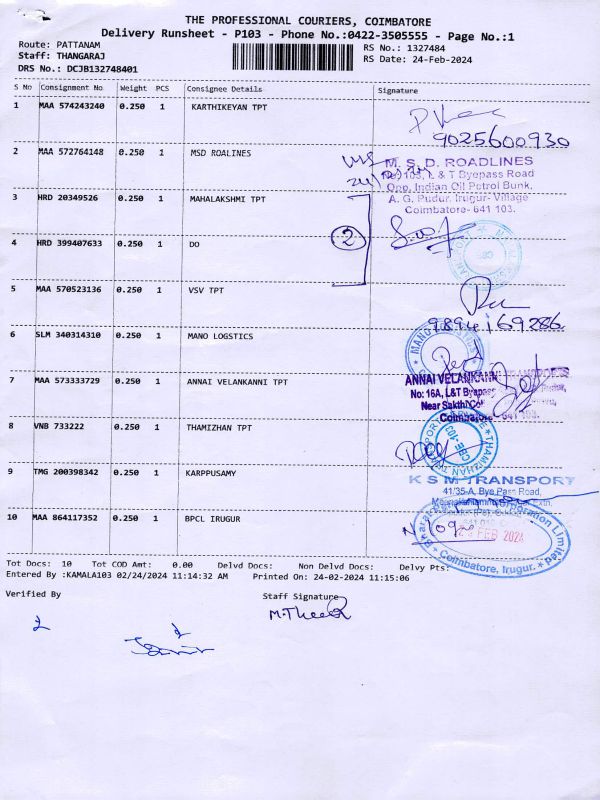 THE PROFESSIONAL COURIERS, COIMBATORE
Delivery Runsheet - P103 - Phone No.:0422-3505555 - Page No.:1
Route: PATTANAM
RS No.: 1327484
Staff: THANGARAJ
RS Date: 24-Feb-2024
DRS No.: DCJB132748401
S No Consignment No. Weight PCS Consignee Details Signature
1 MAA 574243240 0.250 1 KARTHIKEYAN TPT
9025600930
2 MAA 572764148 0.250 1 MSD ROALINES
M. S. D. ROADLINES
No.103, L & T Byepass Road
Opp. Indian Oil Petrol Bunk,
A. G. Pudur, Irugur-Village
Coimbatore- 641 103.
3 HRD 20349526 0.250 1 MAHALAKSHMI TPT
2
4 HRD 399407633 0.250 1 DO
5 MAA 570523136 0.250 1 VSV TPT
9894169286
6 SLM 340314310 0.250 1 MANO LOGSTICS
7 MAA 573333729 0.250 1 ANNAI VELANKANNI TPT
ANNAI VELANKANNI
No: 16A, L&T Byepass
Near Sakthi Col
Coimbatore- 641 103.
8 VNB 733222 0.250 1 THAMIZHAN TPT
CBE-103
9 TMG 200398342 0.250 1 KARPPUSAMY
K S M TRANSPORT
41/35-A, Bye Pass Road,
10 MAA 864117352 0.250 1 BPCL IRUGUR
Corporation Limited
FEB 2024
Coimbatore, Irugur.
Tot Docs: 10 Tot COD Amt: 0.00 Delvd Docs: Non Delvd Docs: Delvy Pts:
Entered By :KAMALA103 02/24/2024 11:14:32 AM Printed On: 24-02-2024 11:15:06
Verified By Staff Signature